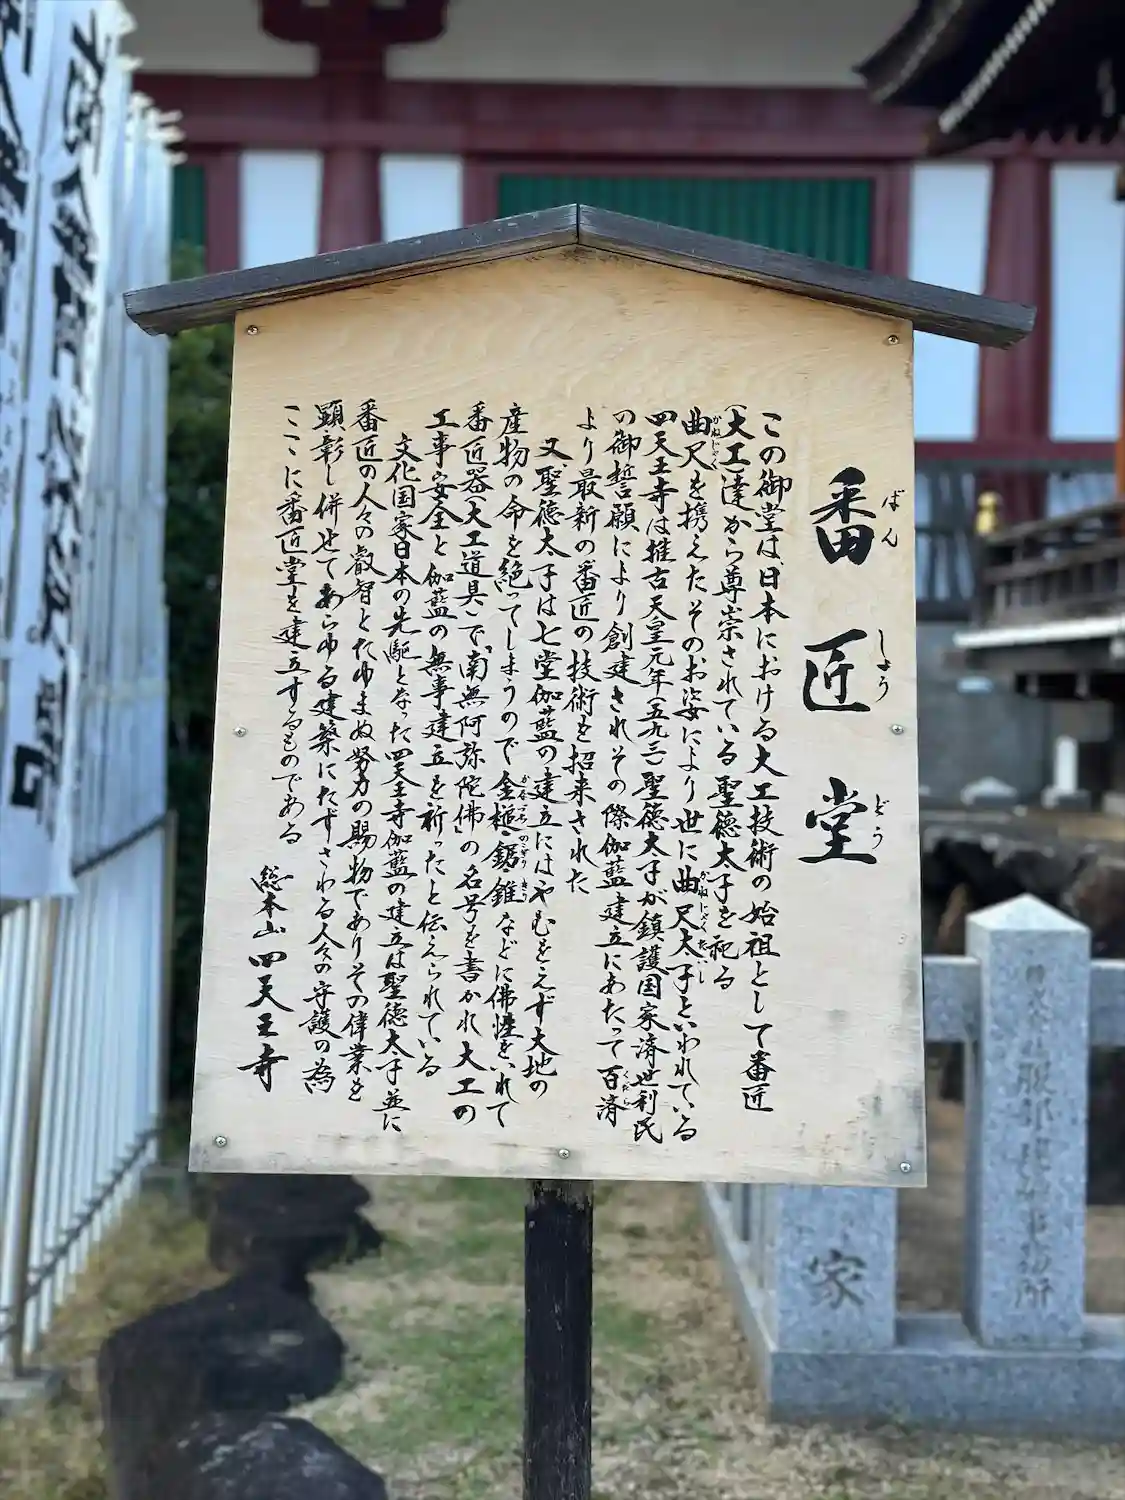 番匠堂
ばんしょうどう
この御堂は、日本における大工技術の始祖として番匠
(大工)達から尊崇されている聖徳太子を祀る
曲尺を携えたそのお姿により世に曲尺太子といわれている
かねじゃく
かねじゃくたいし
四天王寺は推古天皇元年(五九三)聖徳太子が鎮護国家済世利民
の御誓願により創建されその際伽藍建立にあたって百済
くだら
より最新の番匠の技術を招来された
又、聖徳太子は七堂伽藍の建立にはやむをえず大地の
産物の命を絶ってしまうので金槌・鋸・錐などに佛性をいれて
かなづち
のこぎり
きり
番匠器(大工道具)で「南無阿弥陀佛」の名号を書かれ大工の
工事安全と伽藍の無事建立を祈ったと伝えられている
文化国家日本の先駆となった四天王寺伽藍の建立は聖徳太子並に
番匠の人々の叡智とたゆまぬ努力の賜物でありその偉業を
顕彰し併せてあらゆる建築にたずさわる人々の守護の為
ここに番匠堂を建立するものである
総本山四天王寺
家